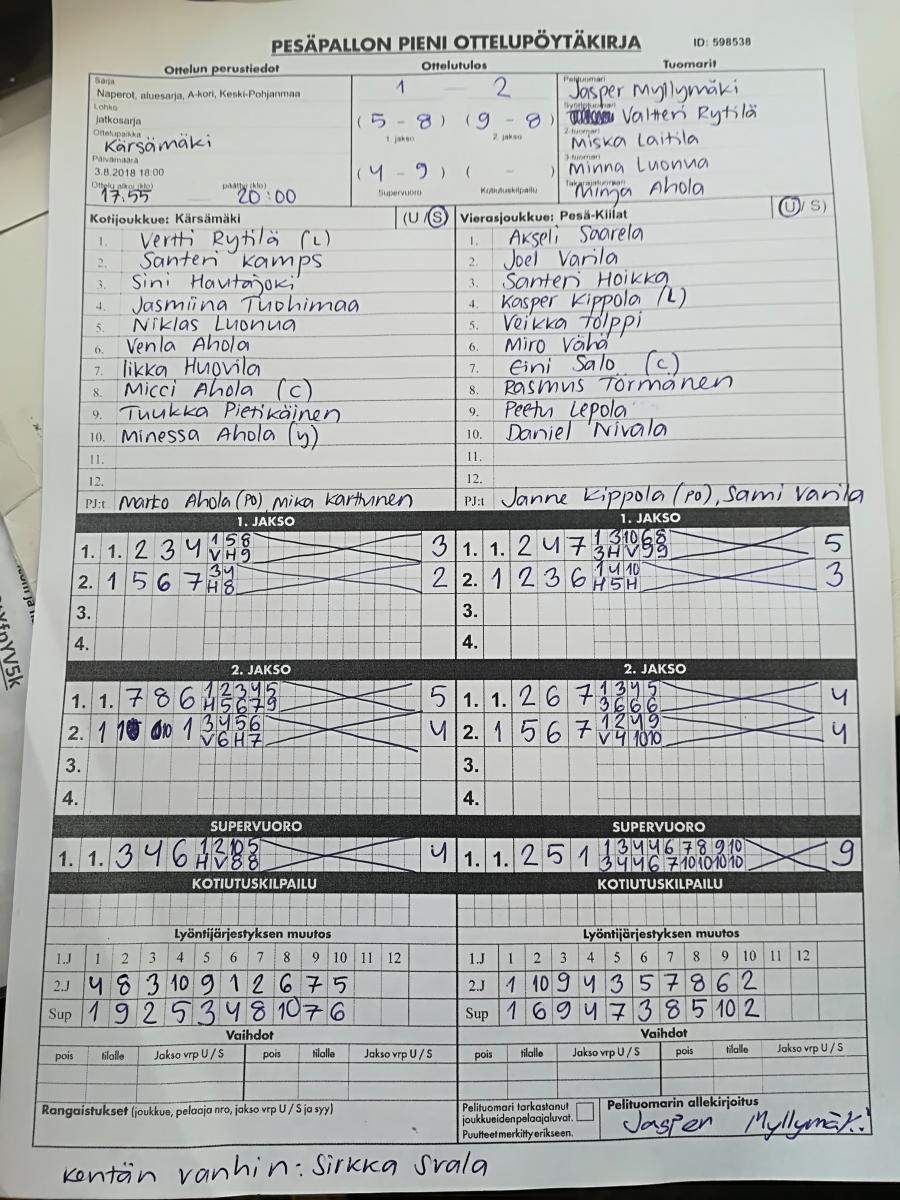 PESÄPALLON PIENI OTTELUPÖYTÄKIRJA ID: 598538
Ottelun perustiedot Ottelutulos Tuomarit
Sarja
Naperot, aluesarja, A-kori, Keski-Pohjanmaa
Lohko
jatkosarja
Ottelupaikka
Kärsämäki
Päivämäärä
3.8.2018 18:00
Ottelu alkoi (klo) päättyi (klo)
17:55 20:00
1 - 2
(5 - 8) (9 - 8)
1. jakso 2. jakso
(4 - 9) ( - )
Supervuoro Kotiutuskilpailu
Pelituomari
Jasper Myllymäki
Syöttötuomari
Valtteri Rytilä
2-tuomari
Miska Laitila
3-tuomari
Minna Luonua
Takarajatuomari
Minja Ahola
Kotijoukkue: Kärsämäki (U / S)
1. Vertti Rytilä (L)
2. Santeri Kamps
3. Sini Hautajoki
4. Jasmiina Tuohimaa
5. Niklas Luonua
6. Venla Ahola
7. Iikka Huovila
8. Micci Ahola (C)
9. Tuukka Pietikäinen
10. Minessa Ahola (y)
11.
12.
PJ:t Marko Ahola (PO), Mika Karhunen
Vierasjoukkue: Pesä-Kiilat (U / S)
1. Akseli Saarela
2. Joel Varila
3. Santeri Hoikka
4. Kasper Kippola (L)
5. Veikka Tölppi
6. Miro Vähä
7. Eini Salo (C)
8. Rasmus Törmänen
9. Peetu Lepola
10. Daniel Nivala
11.
12.
PJ:t Janne Kippola (PO), Sami Varila
1. JAKSO 1. JAKSO
1. 1. 2 3 4 1 5 8 3 1. 1. 2 4 7 1 3 10 6 8 5
V H 9 3 H V 9 9
2. 1 5 6 7 3 4 2 2. 1 2 3 6 1 4 10 3
H 8 H 5 H
3. 3.
4. 4.
2. JAKSO 2. JAKSO
1. 1. 7 8 6 1 2 3 4 5 5 1. 1. 2 6 7 1 3 4 5 4
H 5 6 7 9 3 6 6 6
2. 1 10 1 3 4 5 6 4 2. 1 5 6 7 1 2 4 9 4
V 6 H 7 V 4 10 10
3. 3.
4. 4.
SUPERVUORO SUPERVUORO
1. 1. 3 4 6 1 2 10 5 4 1. 1. 2 5 1 1 3 4 4 6 7 8 9 10 9
H V 8 8 3 4 4 6 7 10 10 10 10
KOTIUTUSKILPAILU KOTIUTUSKILPAILU
Lyöntijärjestyksen muutos Lyöntijärjestyksen muutos
1.J 1 2 3 4 5 6 7 8 9 10 11 12 1.J 1 2 3 4 5 6 7 8 9 10 11 12
2.J 4 8 3 10 9 1 2 6 7 5 2.J 1 10 9 4 3 5 7 8 6 2
Sup 1 9 2 5 3 4 8 10 7 6 Sup 1 6 9 4 7 3 8 5 10 2
Vaihdot Vaihdot
pois tilalle Jakso vrp U / S pois tilalle Jakso vrp U / S pois tilalle Jakso vrp U / S pois tilalle Jakso vrp U / S
Rangaistukset (joukkue, pelaaja nro, jakso vrp U / S ja syy)
Pelituomari tarkastanut
joukkueidenpelaajaluvat.
Puutteet merkitty erikseen.
Pelituomarin allekirjoitus
Jasper Myllymäki
Kentän vanhin: Sirkka Svala